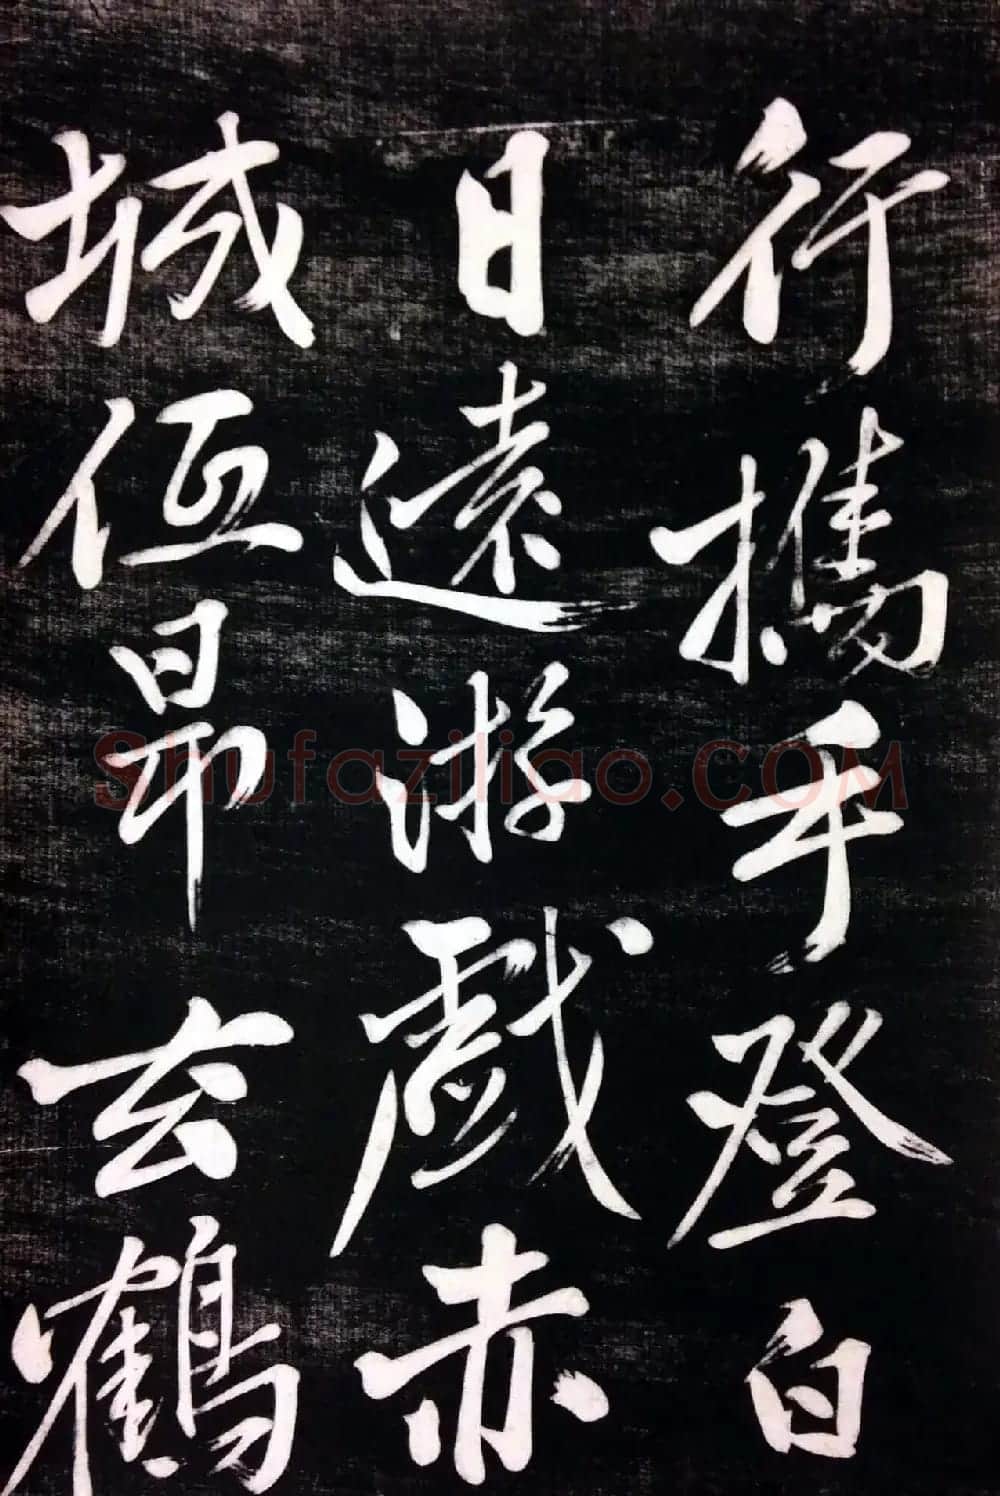 行攜手登白
日遠游戲赤
城低昂玄鶴
Shufaziliao.COM